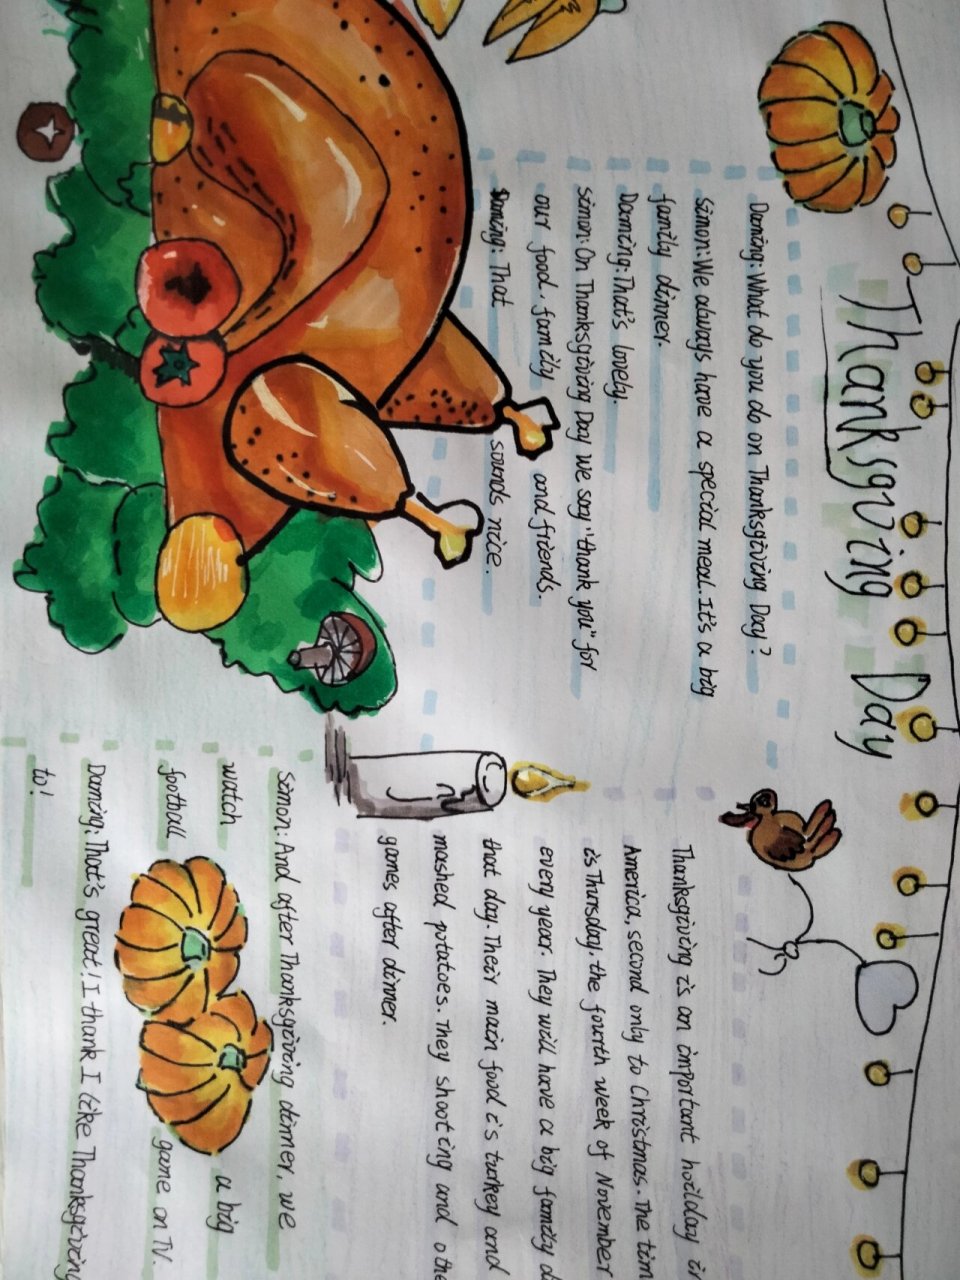 Thanksgiving Day
Daming: What do you do on Thanksgiving Day?
Simon: We always have a special meal. It's a big
family dinner.
Daming: That's lovely.
Simon: On Thanksgiving Day we say "thank you" for
our food, family and friends.
Daming: That sounds nice.
Thanksgiving is an important holiday
America, second only to Christmas. The
is Thursday, the fourth week of November
every year. They will have a big family
that day. Their main food is turkey and
mashed potatoes. They shooting and
games after dinner.
Simon: And after Thanksgiving dinner, we
watch a big
football game on TV.
Daming: That's great! I thank I like Thanksgiving
to!